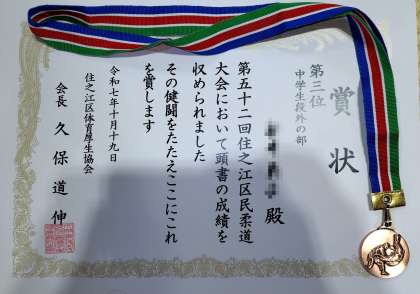 賞状
第三位
中学生段外の部
殿
第五十二回住之江区民柔道
大会において頭書の成績を
収められました
その健闘をたたえここにこれ
を賞します
令和七年十月十九日
住之江区体育厚生協会
会長 久保道伸